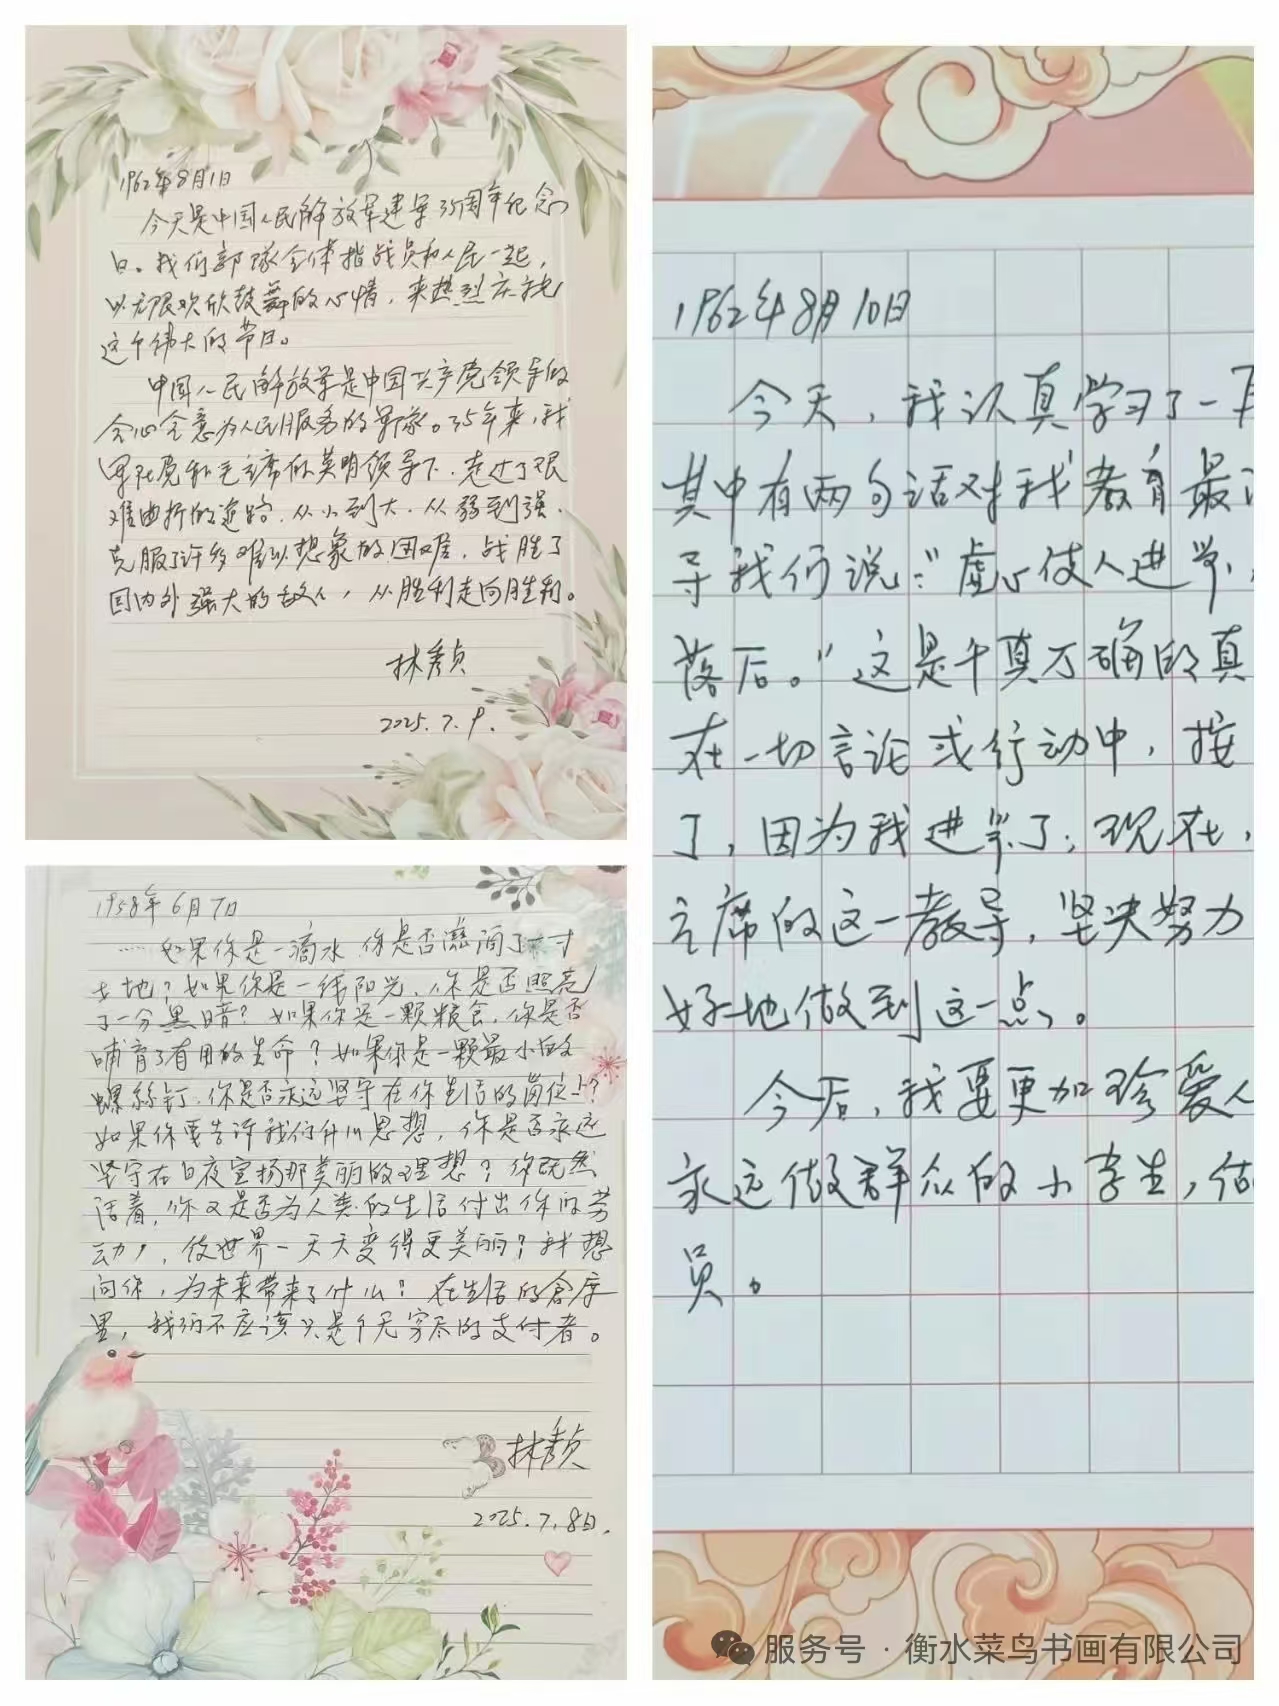 1962年8月1日
今天是中国人民解放军建军35周年纪念
日。我们部队全体指战员和人民一起,
以无限欢欣鼓舞的心情,来热烈庆祝
这个伟大的节日。
中国人民解放军是中国共产党领导的
全心全意为人民服务的军队。35年来,我
军在党和毛主席的英明领导下,走过了艰
难曲折的道路,从小到大,从弱到强,
克服了许多难以想象的困难,战胜了
国内外强大的敌人,从胜利走向胜利。
林秀贞
2025.7.9.
1958年6月7日
……如果你是一滴水,你是否滋润了一寸
土地?如果你是一线阳光,你是否照亮
了一分黑暗?如果你是一颗粮食,你是否
哺育了有用的生命?如果你是一颗最小的
螺丝钉,你是否永远坚守在你生活的岗位上?
如果你要告诉我们什么思想,你是否永远
坚守在日夜宣扬那美丽的理想?你既然
活着,你又是否为人类的生活付出你的劳
动,使世界一天天变得更美丽?我想
问你,为未来带来了什么?在生活的仓库
里,我们不应该只是个无穷尽的支付者。
林秀贞
2025.7.8日.
1962年8月10日
今天,我认真学习了一
其中有两句话对我教育最
导我们说:“虚心使人进步,
落后。”这是千真万确的真
在一切言论或行动中,按
了,因为我进步了;现在,
主席的这一教导,坚决努力
好地做到这一点。
今后,我要更加珍爱人
永远做群众的小学生,做
员。
服务号·衡水菜鸟书画有限公司